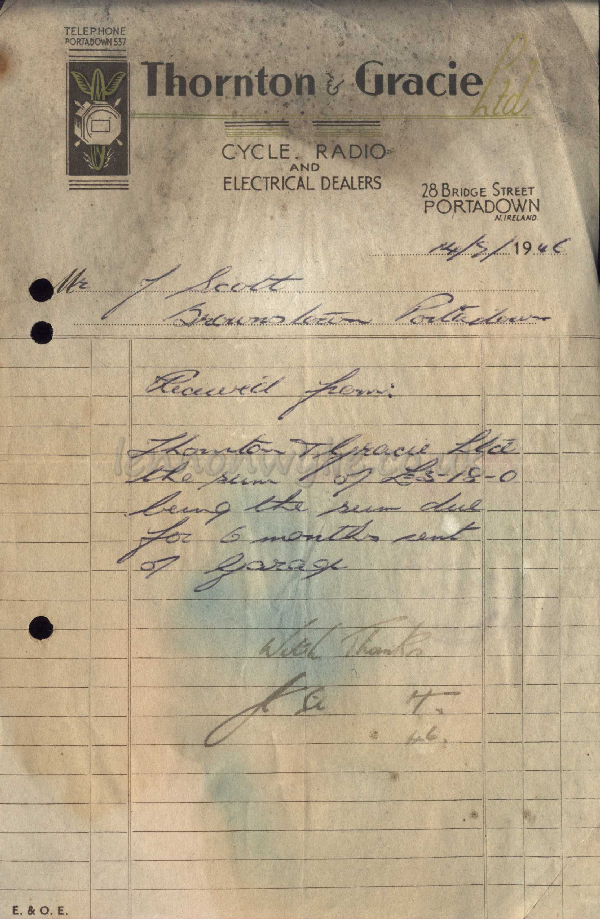 TELEPHONE
PORTADOWN 537
Thornton & Gracie Ltd
CYCLE. RADIO
AND
ELECTRICAL DEALERS
28 BRIDGE STREET
PORTADOWN
N. IRELAND.
1946
Mr J Scott
Brownstown Portadown
Received from:
Thornton & Gracie Ltd
the sum of £3-18-0
being the sum due
for 6 months rent
of Garage
With Thanks
E. & O. E.